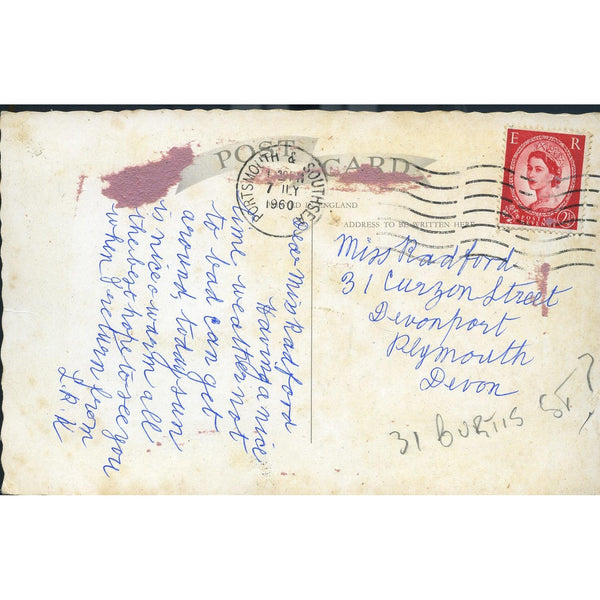 POST CARD
PORTSMOUTH & SOUTHSEA
7 JLY
1960
E R
ENGLAND
ADDRESS TO BE WRITTEN HERE
Dear Miss Radford
Having a nice
time weather not
to bad can get
around, today sun
is nice + warm all
the best hope to see you
when I return from
Miss Radford
31 Curzon Street
Devonport
Plymouth
Devon
31 BURTIS ST ?